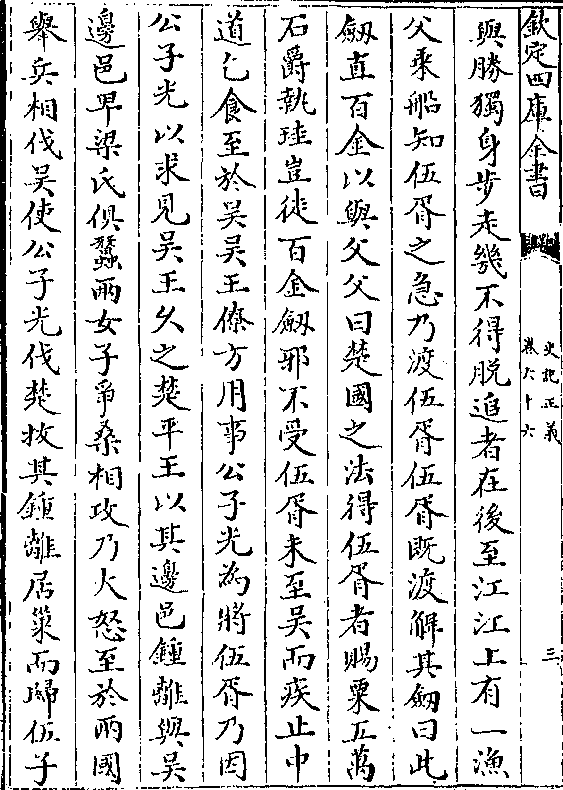 欽定四庫全書
史記正義
卷六十六
三
與勝獨身步走幾不得脫追者在後至江江上有一漁
父乘船知伍胥之急乃渡伍胥伍胥既渡解其劒曰此
劒直百金以與父父曰楚國之法得伍胥者賜粟五萬
石爵執珪豈徒百金劒邪不受伍胥未至吳而疾止中
道乞食至於吳吳王僚方用事公子光為將伍胥乃因
公子光以求見吳王久之楚平王以其邊邑鍾離與吳
邊邑卑梁氏俱蠶兩女子爭桑相攻乃大怒至於兩國
舉兵相伐吳使公子光伐楚拔其鍾離居巢而歸伍子